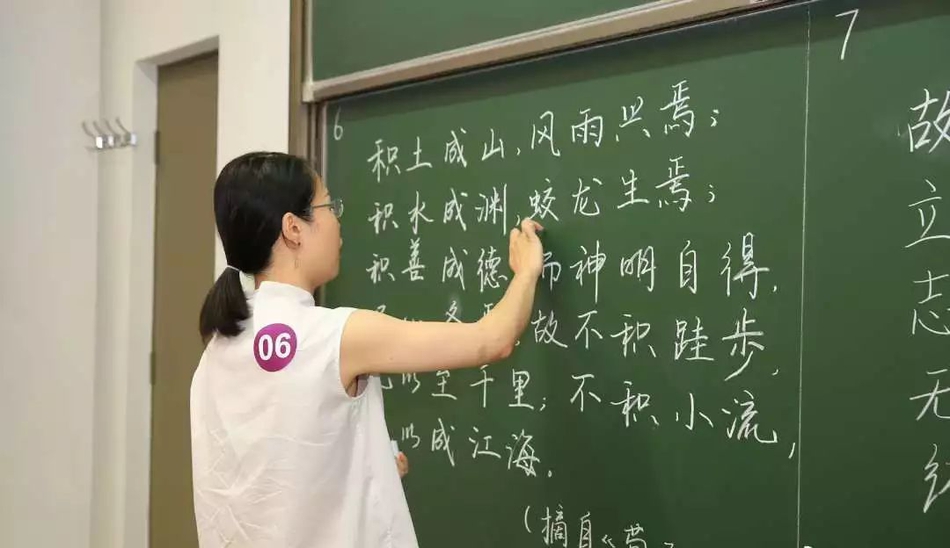 6
积土成山,风雨兴焉;
积水成渊,蛟龙生焉;
积善成德 而神明自得,
故不积跬步,
以至千里;不积小流,
以成江海.
(摘自《
7
故
立
志
无
06